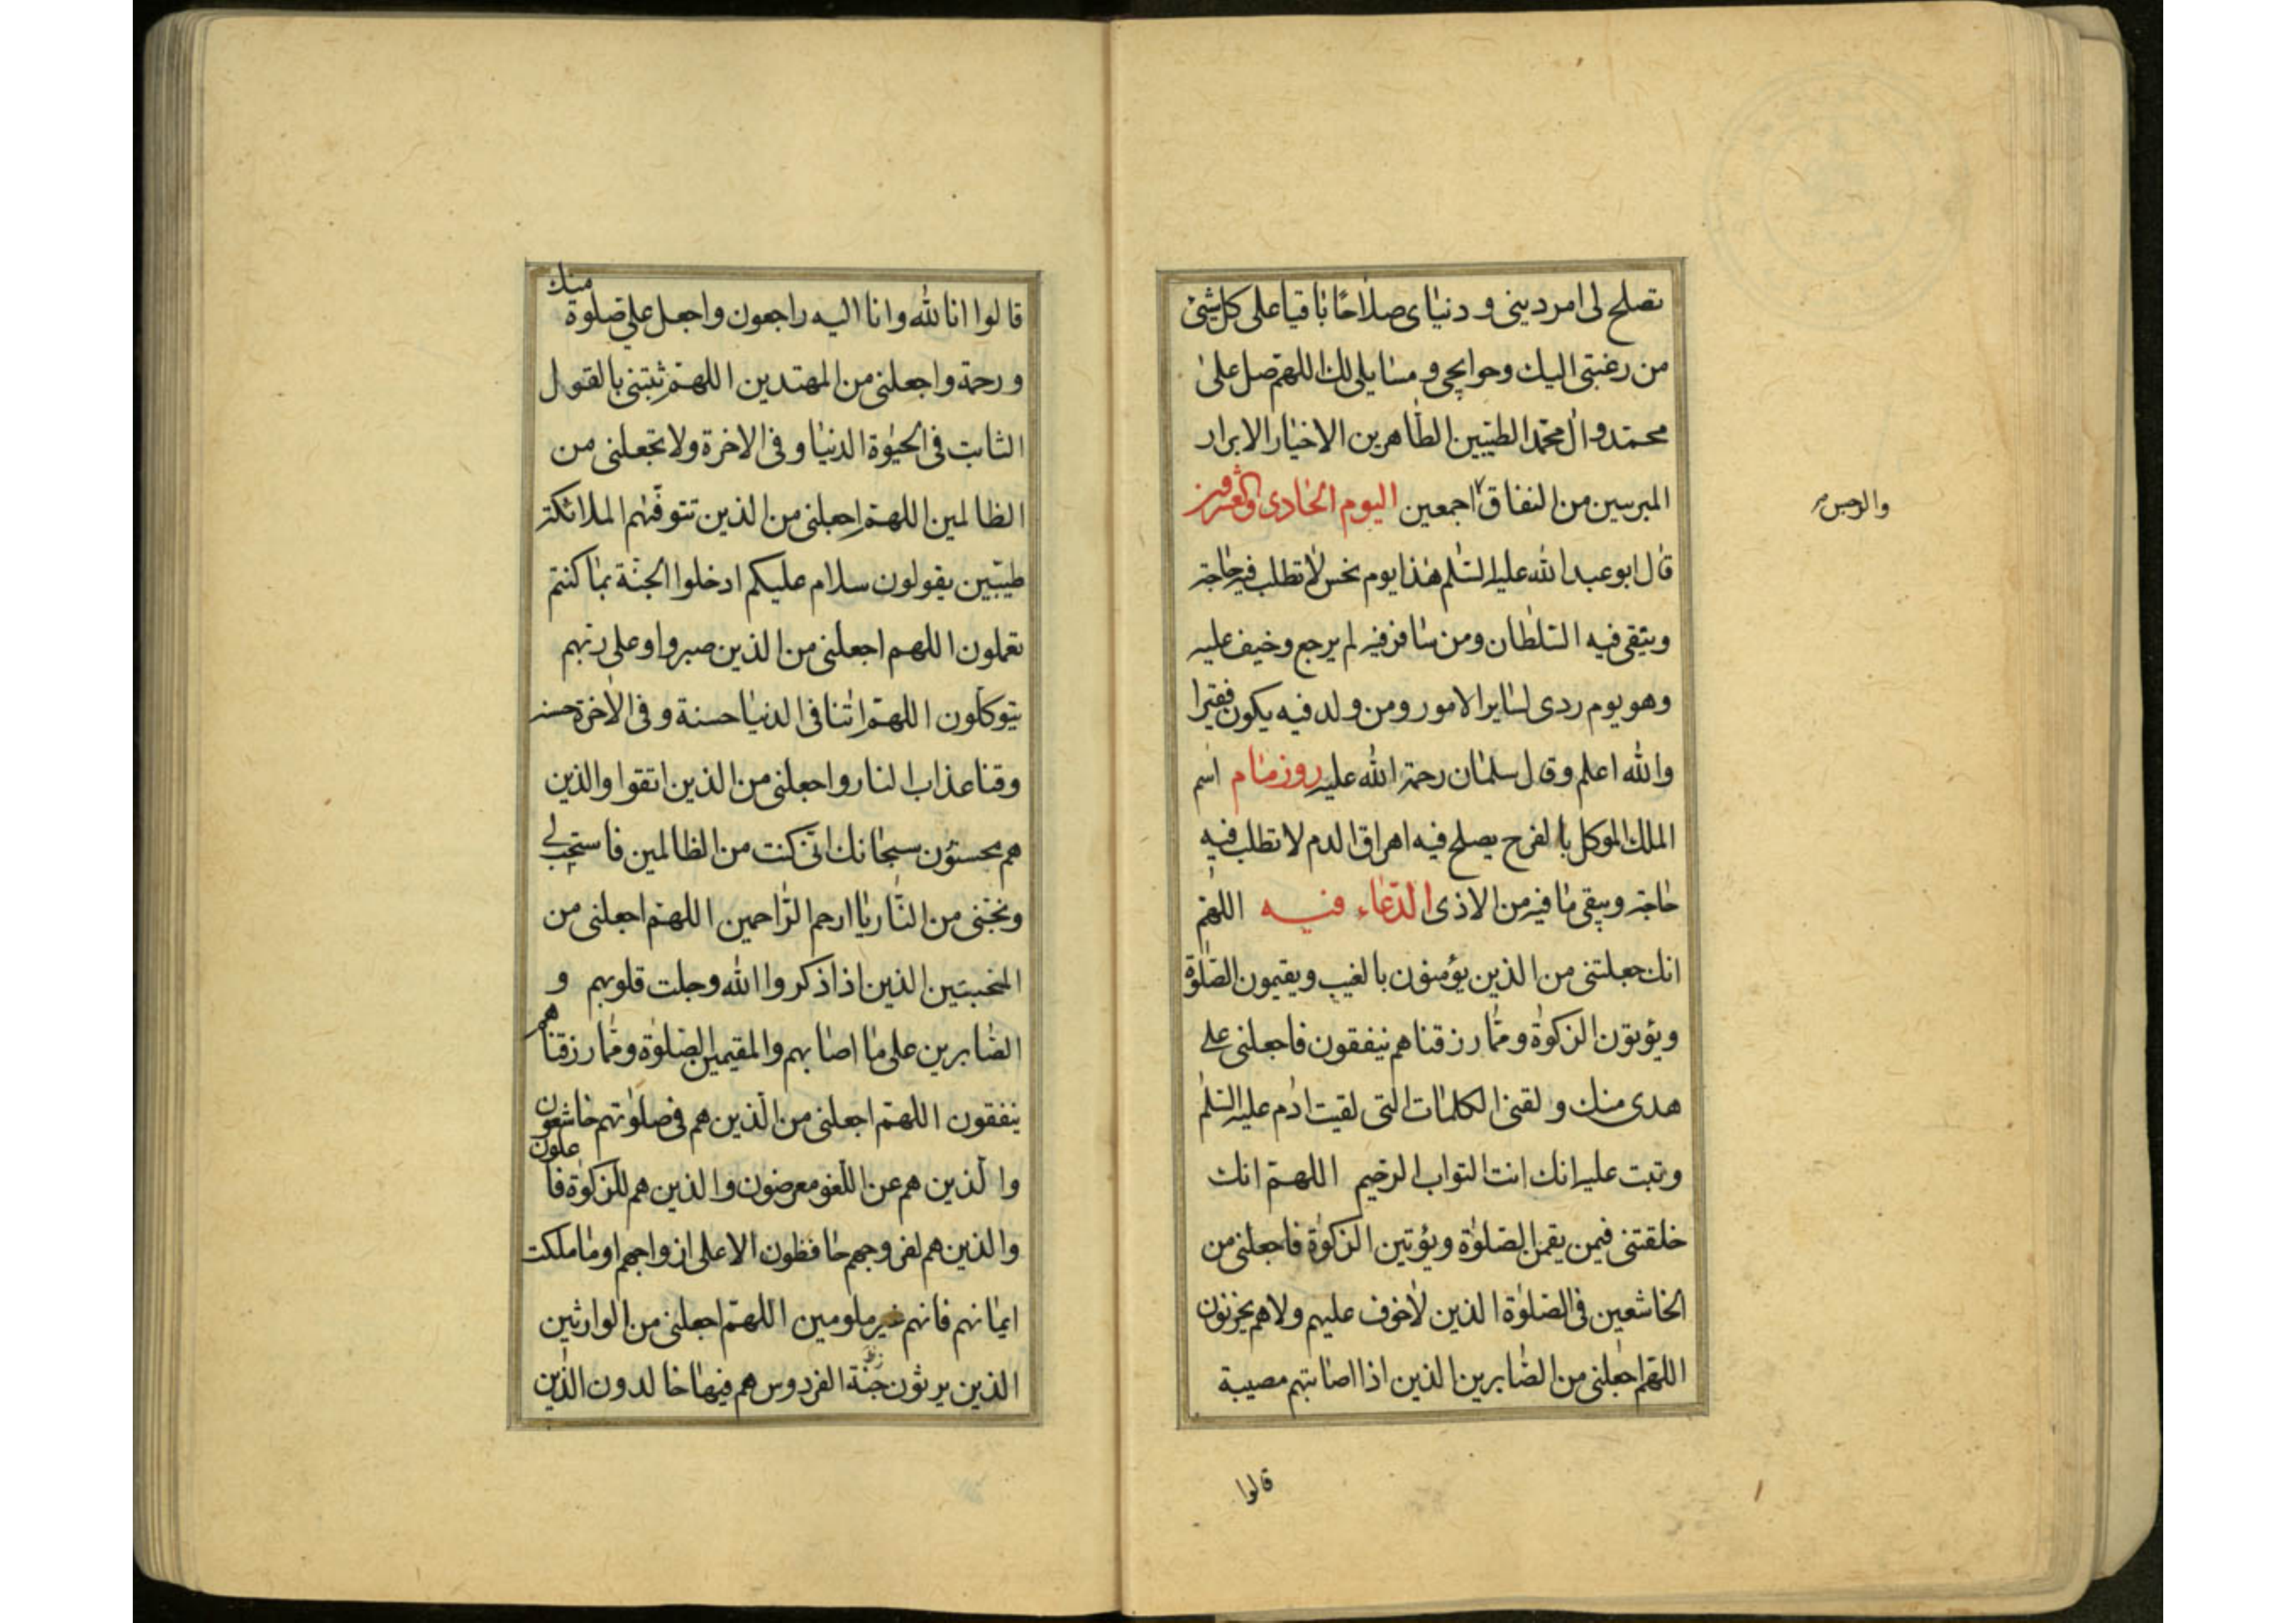 تصلح لى امر دينى و دنياى صلاحًا باقيا على كل شئ
من رغبتى اليك وحوايجى و مسايلى لك اللهم صل على
محمد وآل محمد الطيبين الطاهرين الاخيار الابرار
المبرءين من النفاق اجمعين اليوم الحادى والعشرون
والرجس
قال ابو عبد الله عليه السلم هذا يوم نحس لا تطلب فيه حاجة
ويتقى فيه السلطان ومن سافر فيه لم يرجع وخيف عليه
وهو يوم ردى لساير الامور ومن ولد فيه يكون فقيرا
والله اعلم وقال سلمان رحمة الله عليه روز مام اسم
الملك الموكل بالفرح يصلح فيه اهراق الدم لا تطلب فيه
حاجة ويتقى ما فيه من الاذى الدعاء فيه اللهم
انك جعلتنى من الذين يؤمنون بالغيب ويقيمون الصلوة
ويؤتون الزكوة ومما رزقناهم ينفقون فاجعلنى على
هدى منك و لقنى الكلمات التى لقيت ادم عليه السلم
وتبت عليه انك انت التواب الرحيم اللهم انك
خلقتنى فيمن يقمن الصلوة ويؤتين الزكوة فاجعلنى من
الخاشعين فى الصلوة الذين لا خوف عليهم ولا هم يحزنون
اللهم اجعلنى من الصابرين الذين اذا اصابتهم مصيبة
قالوا
قالوا انا لله وانا اليه راجعون واجعل على صلوة منك
ورحمة واجعلنى من المهتدين اللهم ثبتنى بالقول
الثابت فى الحيوة الدنيا و فى الاخرة ولا تجعلنى من
الظالمين اللهم اجعلنى من الذين تتوفيهم الملائكة
طيبين يقولون سلام عليكم ادخلوا الجنة بما كنتم
تعملون اللهم اجعلنى من الذين صبروا وعلى ربهم
يتوكلون اللهم اتنا فى الدنيا حسنة و فى الاخرة حسنة
وقنا عذاب النار واجعلنى من الذين اتقوا والذين
هم محسنون سبحانك انى كنت من الظالمين فاستجب لى
ونجنى من النار يا ارحم الراحمين اللهم اجعلنى من
المخبتين الذين اذا ذكروا الله وجلت قلوبهم و
الصابرين على ما اصابهم والمقيمين الصلوة ومما رزقناهم
ينفقون اللهم اجعلنى من الذين هم فى صلوتهم خاشعون
والذين هم عن اللغو معرضون والذين هم للزكوة فاعلون
والذين هم لفروجهم حافظون الا على ازواجهم او ما ملكت
ايمانهم فانهم غير ملومين اللهم اجعلنى من الوارثين
الذين يرثون جنة الفردوس هم فيها خالدون الذين